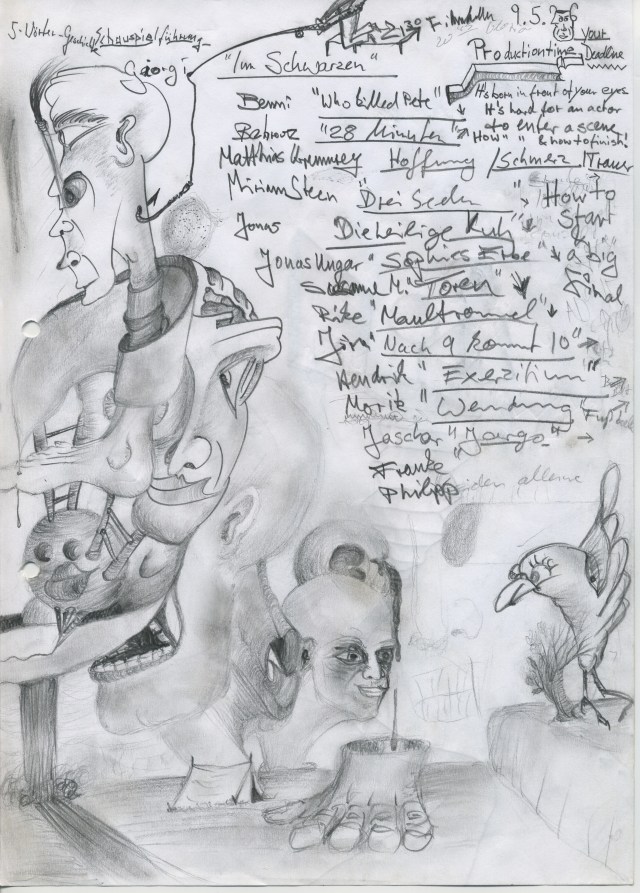 5-Wörter- Schauspielführung
9.5.2006
your
Deadline
Productiontime
Georgi "Im Schwarzen"
It's born in front of your eyes
It's hard for an actor
to enter a scene
"How" & how to finish
Benni "Who killed Pete"
"28 Minuten"
Matthias Hoffnung / Schmerz / Trauer
Miriam Steen "Drei Seelen"
How to
Start
&
a big
Final
Jonas Die heilige Kuh
Jonas Ungar "Sophies Erbe"
Susanne M. "Toren"
Rike "Maultrommel"
"Nach 9 kommt 10"
Hendrik "Exerzitium"
Moritz "Wendung"
Jaschar "Jargo"
Frauke
Philipp